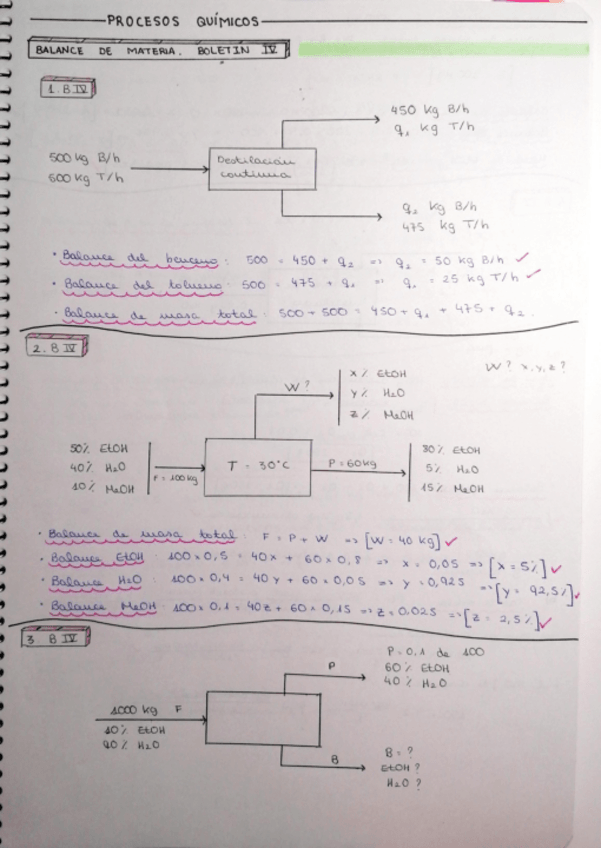 PROCESOS QUÍMICOS
BALANCE DE MATERIA. BOLETÍN IV
1. B IV
450 kg B/h
q₁ kg T/h
500 kg B/h
500 kg T/h
Destilación
continua
q₂ kg B/h
475 kg T/h
· Balance del benceno: 500 = 450 + q₂ => q₂ = 50 kg B/h ✓
· Balance del tolueno: 500 = 475 + q₁ => q₁ = 25 kg T/h ✓
· Balance de masa total: 500 + 500 = 450 + q₁ + 475 + q₂.
2. B IV
W? x, y, z?
W?
x% EtOH
y% H₂O
z% MeOH
50% EtOH
40% H₂O
10% MeOH
F = 100 kg
T = 30°C
P = 60 kg
80% EtOH
5% H₂O
15% MeOH
· Balance de masa total: F = P + W => [W = 40 kg] ✓
· Balance EtOH: 100 × 0,5 = 40x + 60 × 0,8 => x = 0,05 => [x = 5%] ✓
· Balance H₂O: 100 × 0,4 = 40y + 60 × 0,05 => y = 0,925 => [y = 92,5%] ✓
· Balance MeOH: 100 × 0,1 = 40z + 60 × 0,15 => z = 0,025 => [z = 2,5%] ✓
3. B IV
P = 0,1 de 100
60% EtOH
40% H₂O
P
1000 kg F
10% EtOH
90% H₂O
B
B = ?
EtOH ?
H₂O ?